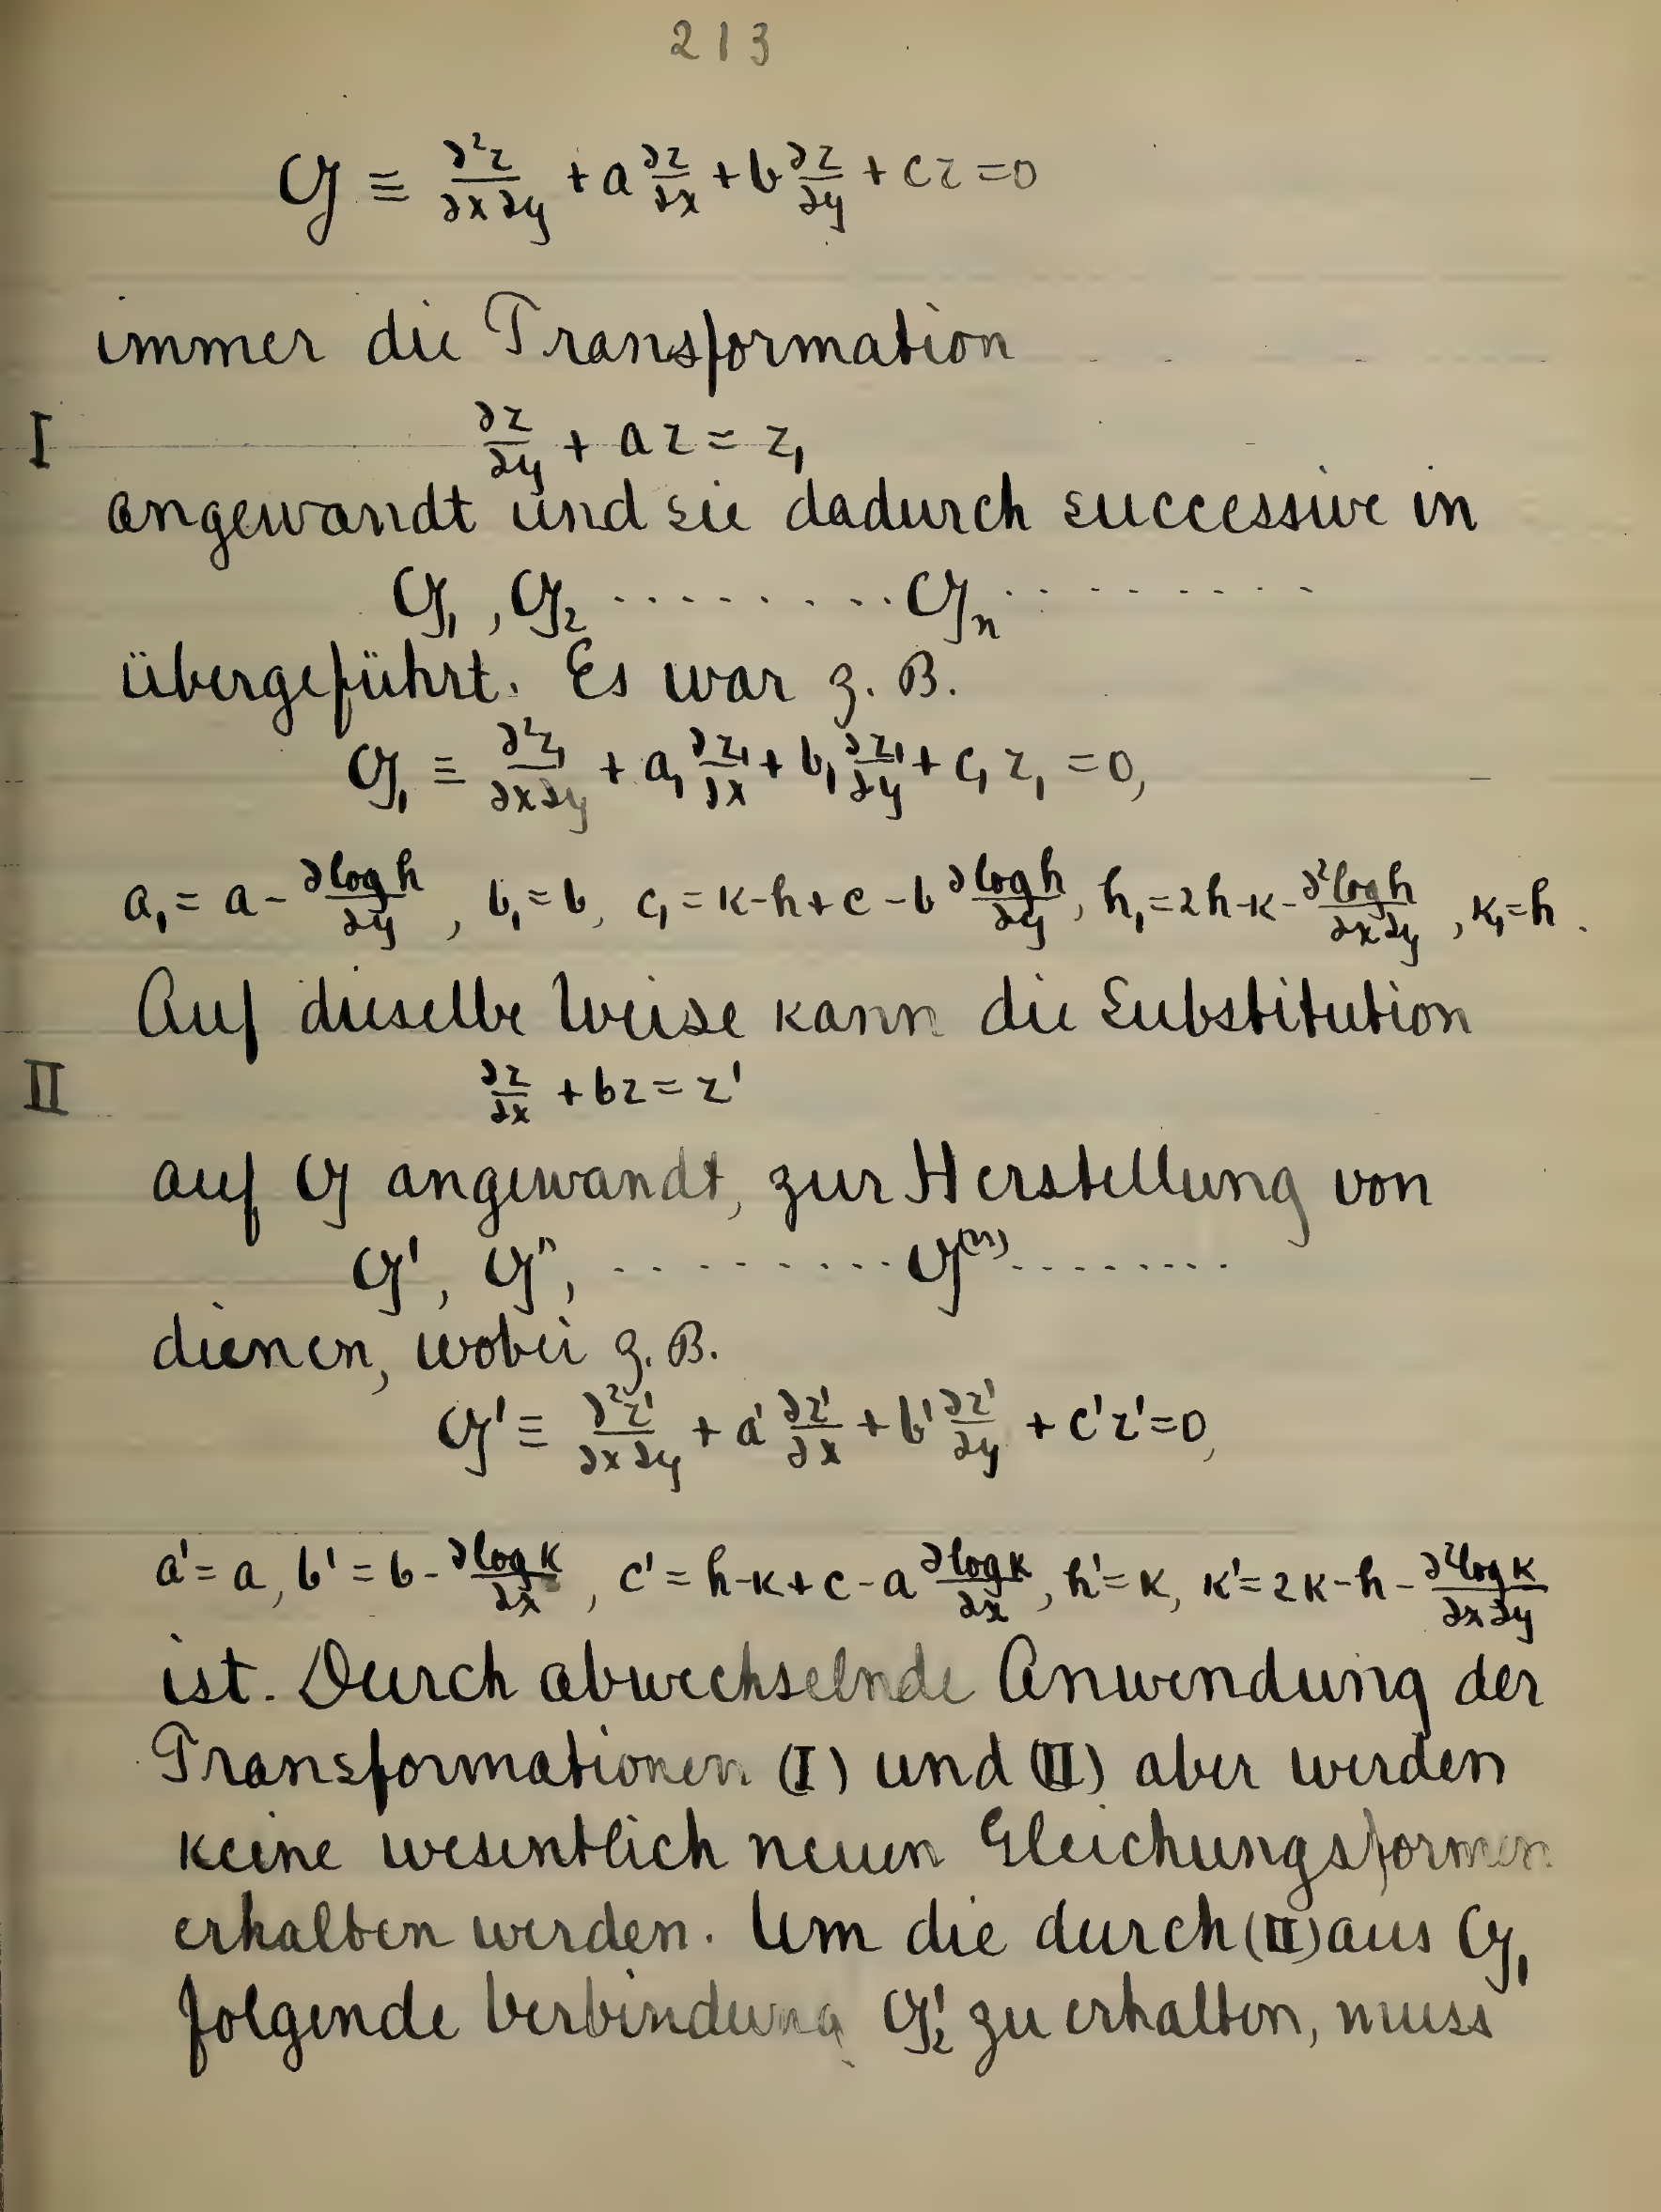 213
𝒴 ≡ ∂²z/∂x∂y + a ∂z/∂x + b ∂z/∂y + cz = 0
immer die Transformation
I ∂z/∂y + az = z₁
angewandt und sie dadurch successive in
𝒴₁, 𝒴₂ ......... 𝒴ₙ .........
übergeführt. Es war z. B.
𝒴₁ ≡ ∂²z₁/∂x∂y + a₁ ∂z₁/∂x + b₁ ∂z₁/∂y + c₁ z₁ = 0,
a₁ = a - ∂log h/∂y, b₁ = b, c₁ = k-h+c-b ∂log h/∂y, h₁ = 2h-k-∂²log h/∂x∂y, k₁ = h.
Auf dieselbe Weise kann die Substitution
II ∂z/∂x + bz = z'
auf 𝒴 angewandt, zur Herstellung von
𝒴', 𝒴'', ......... 𝒴⁽ⁿ⁾ ........
dienen, wobei z. B.
𝒴' ≡ ∂²z'/∂x∂y + a' ∂z'/∂x + b' ∂z'/∂y + c'z' = 0,
a' = a, b' = b - ∂log k/∂x, c' = h-k+c-a ∂log k/∂x, h' = k, k' = 2k-h-∂²log k/∂x∂y
ist. Durch abwechselnde Anwendung der
Transformationen (I) und (II) aber werden
keine wesentlich neuen Gleichungsformen
erhalten werden. Um die durch (II) aus 𝒴₁
folgende Verbindung 𝒴₂' zu erhalten, muss